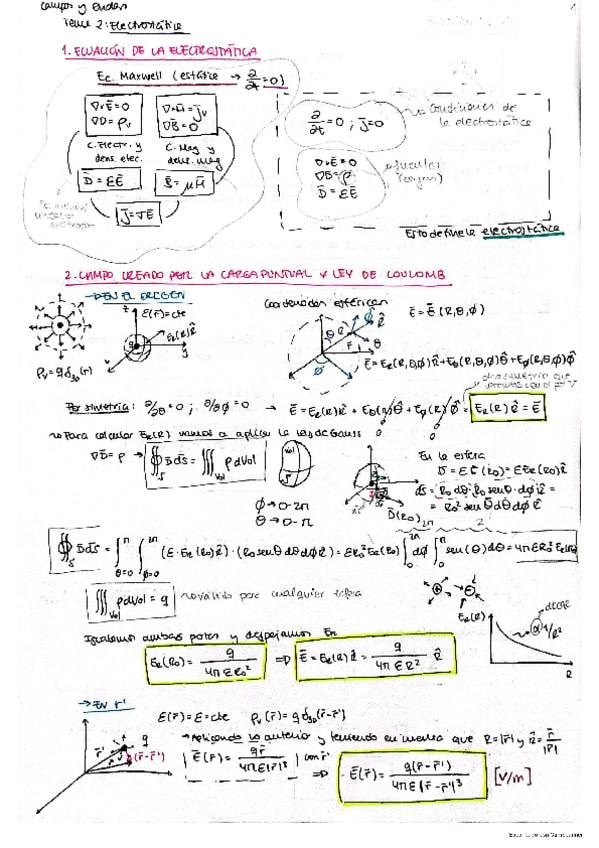 Campos y Ondas
Tema 2: Electrostática
1
1. ECUACIÓN DE LA ELECTROSTÁTICA
Ec. Maxwell (estática → ∂/∂t = 0)
∇×Ē = 0
∇D̄ = ρv
∇×H̄ = J̄v
∇B̄ = 0
C. Electr. y
dens. elec.
C. Mag y
dens. mag
D̄ = εĒ
B̄ = μH̄
J̄ = σĒ
∂/∂t = 0 ; J̄ = 0
Condiciones de
la electrostática
∇×Ē = 0
∇D̄ = ρ
D̄ = εĒ
Esto define la electrostática
2. CAMPO CREADO POR LA CARGA PUNTUAL Y LEY DE COULOMB
→ EN EL ORIGEN
ε(r̄) = cte
ER(R)R̂
ρv = qδ3D(r)
Coordenadas esféricas
Ē = Ē(R,θ,ϕ)
Ē = ER(R,θ,ϕ)R̂ + Eθ(R,θ,ϕ)θ̂ + Eϕ(R,θ,ϕ)ϕ̂
Por simetría: ∂/∂θ = 0 ; ∂/∂ϕ = 0 → Ē = ER(R)R̂ + Eθ(R)θ̂ + Eϕ(R)ϕ̂
ER(R)R̂ = Ē
Para calcular ER(R) vamos a aplicar la ley de Gauss
∇D̄ = ρ → ∯s D̄ds̄ = ∭Vol ρdVol
Vol
S
ϕ → 0-2π
θ → 0-π
En la esfera
D̄ = εĒ(R0) = εER(R0)R̂
ds̄ = R0dθ · R0 senθ · dϕR̂ =
= R0² senθ dθdϕR̂
D̄(R0)
∯s D̄ds̄ = ∫θ=0^π ∫ϕ=0^2π (ε·ER(R0)R̂)·(R0 senθdθdϕR̂) = εR0²ER(R0) ∫0^2π dϕ ∫0^π sen(θ)dθ = 4πεR0²ER(R0)
∭Vol ρdVol = q
válido para cualquier esfera
ER(R)
decae
α 1/R²
R
Igualamos ambas partes y despejamos ER
ER(R0) = q / 4πεR0² ⇒ Ē = ER(R)R̂ = q / 4πεR² R̂
→ En r̄'
ε(r̄) = ε = cte ρv(r̄) = qδ3D(r̄-r̄')
→ Aplicando lo anterior y teniendo en mente que R = |r̄| y R̂ = r̄/|r̄|
Ē(r̄) = qr̄ / 4πε|r̄|³ con r̄' ⇒ Ē(r̄) = q(r̄-r̄') / 4πε|r̄-r̄'|³ [V/m]